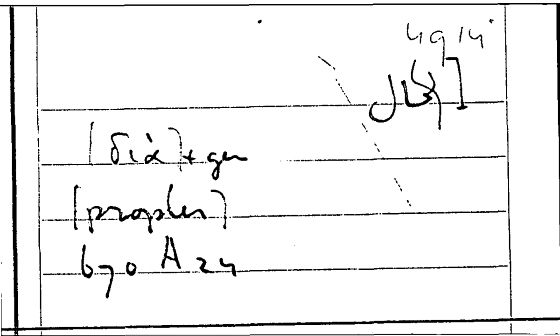 4914
[διὰ] + gen
[propter]
670 A 24